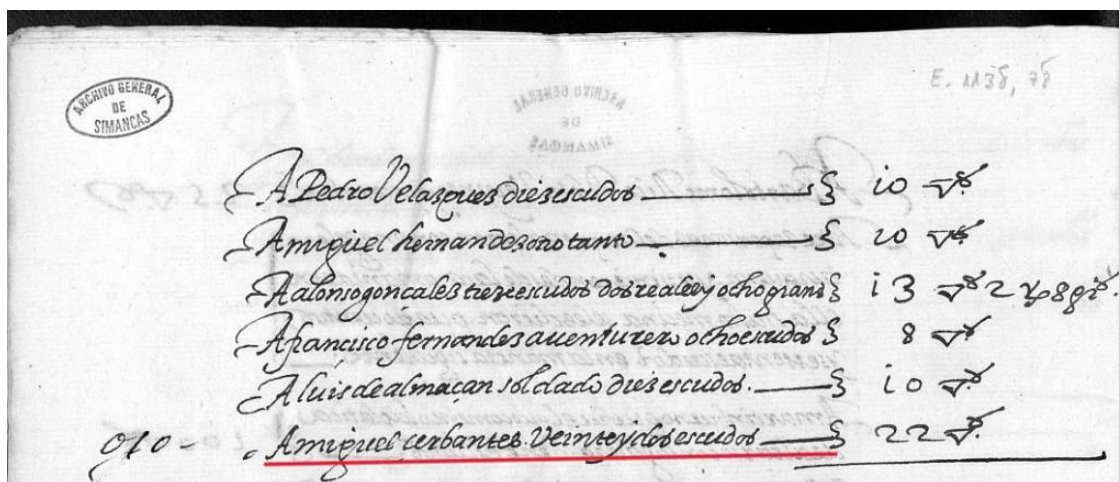 ARCHIVO GENERAL
DE
SIMANCAS
E. 1138, 78
A Pedro Velasques diez escudos 10
A miguel hernandez otro tanto 10
A alonso goncales treze escudos dos reales y ocho grans 13 2 8
A francisco fernandes aventurero ocho escudos 8
A luis de almaçan soldado diez escudos. 10
A miguel cerbantes. Veinte y dos escudos 22